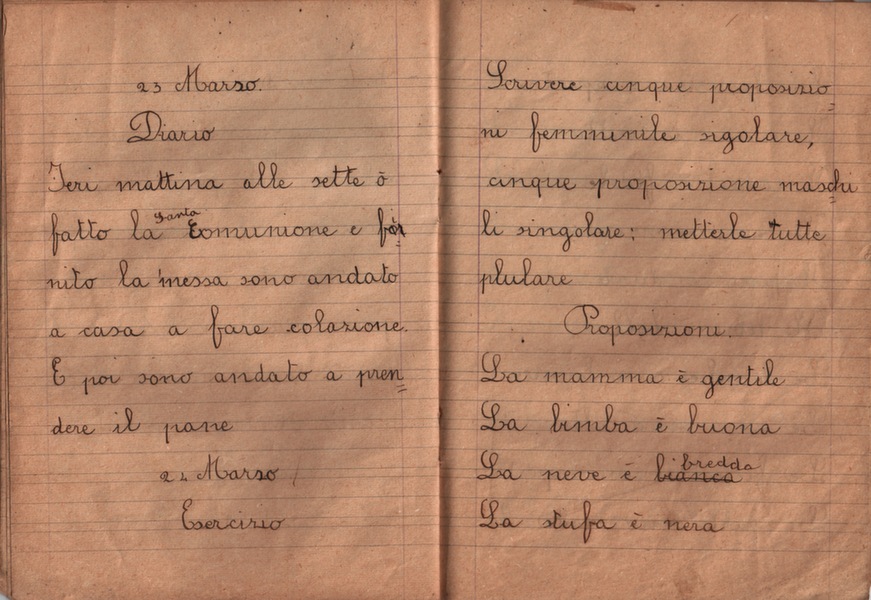 23 Marzo.
Diario
Ieri mattina alle sette ò
fatto la Santa Comunione e for=
nito la messa sono andato
a casa a fare colazione.
E poi sono andato a pren=
dere il pane
24 Marzo
Esercizio
Scrivere cinque proposizio=
ni femminile sigolare,
cinque proposizione maschi
li singolare; metterle tutte
plulare
Proposizioni.
La mamma è gentile
La bimba è buona
La neve è bianca bredda
La stufa è nera